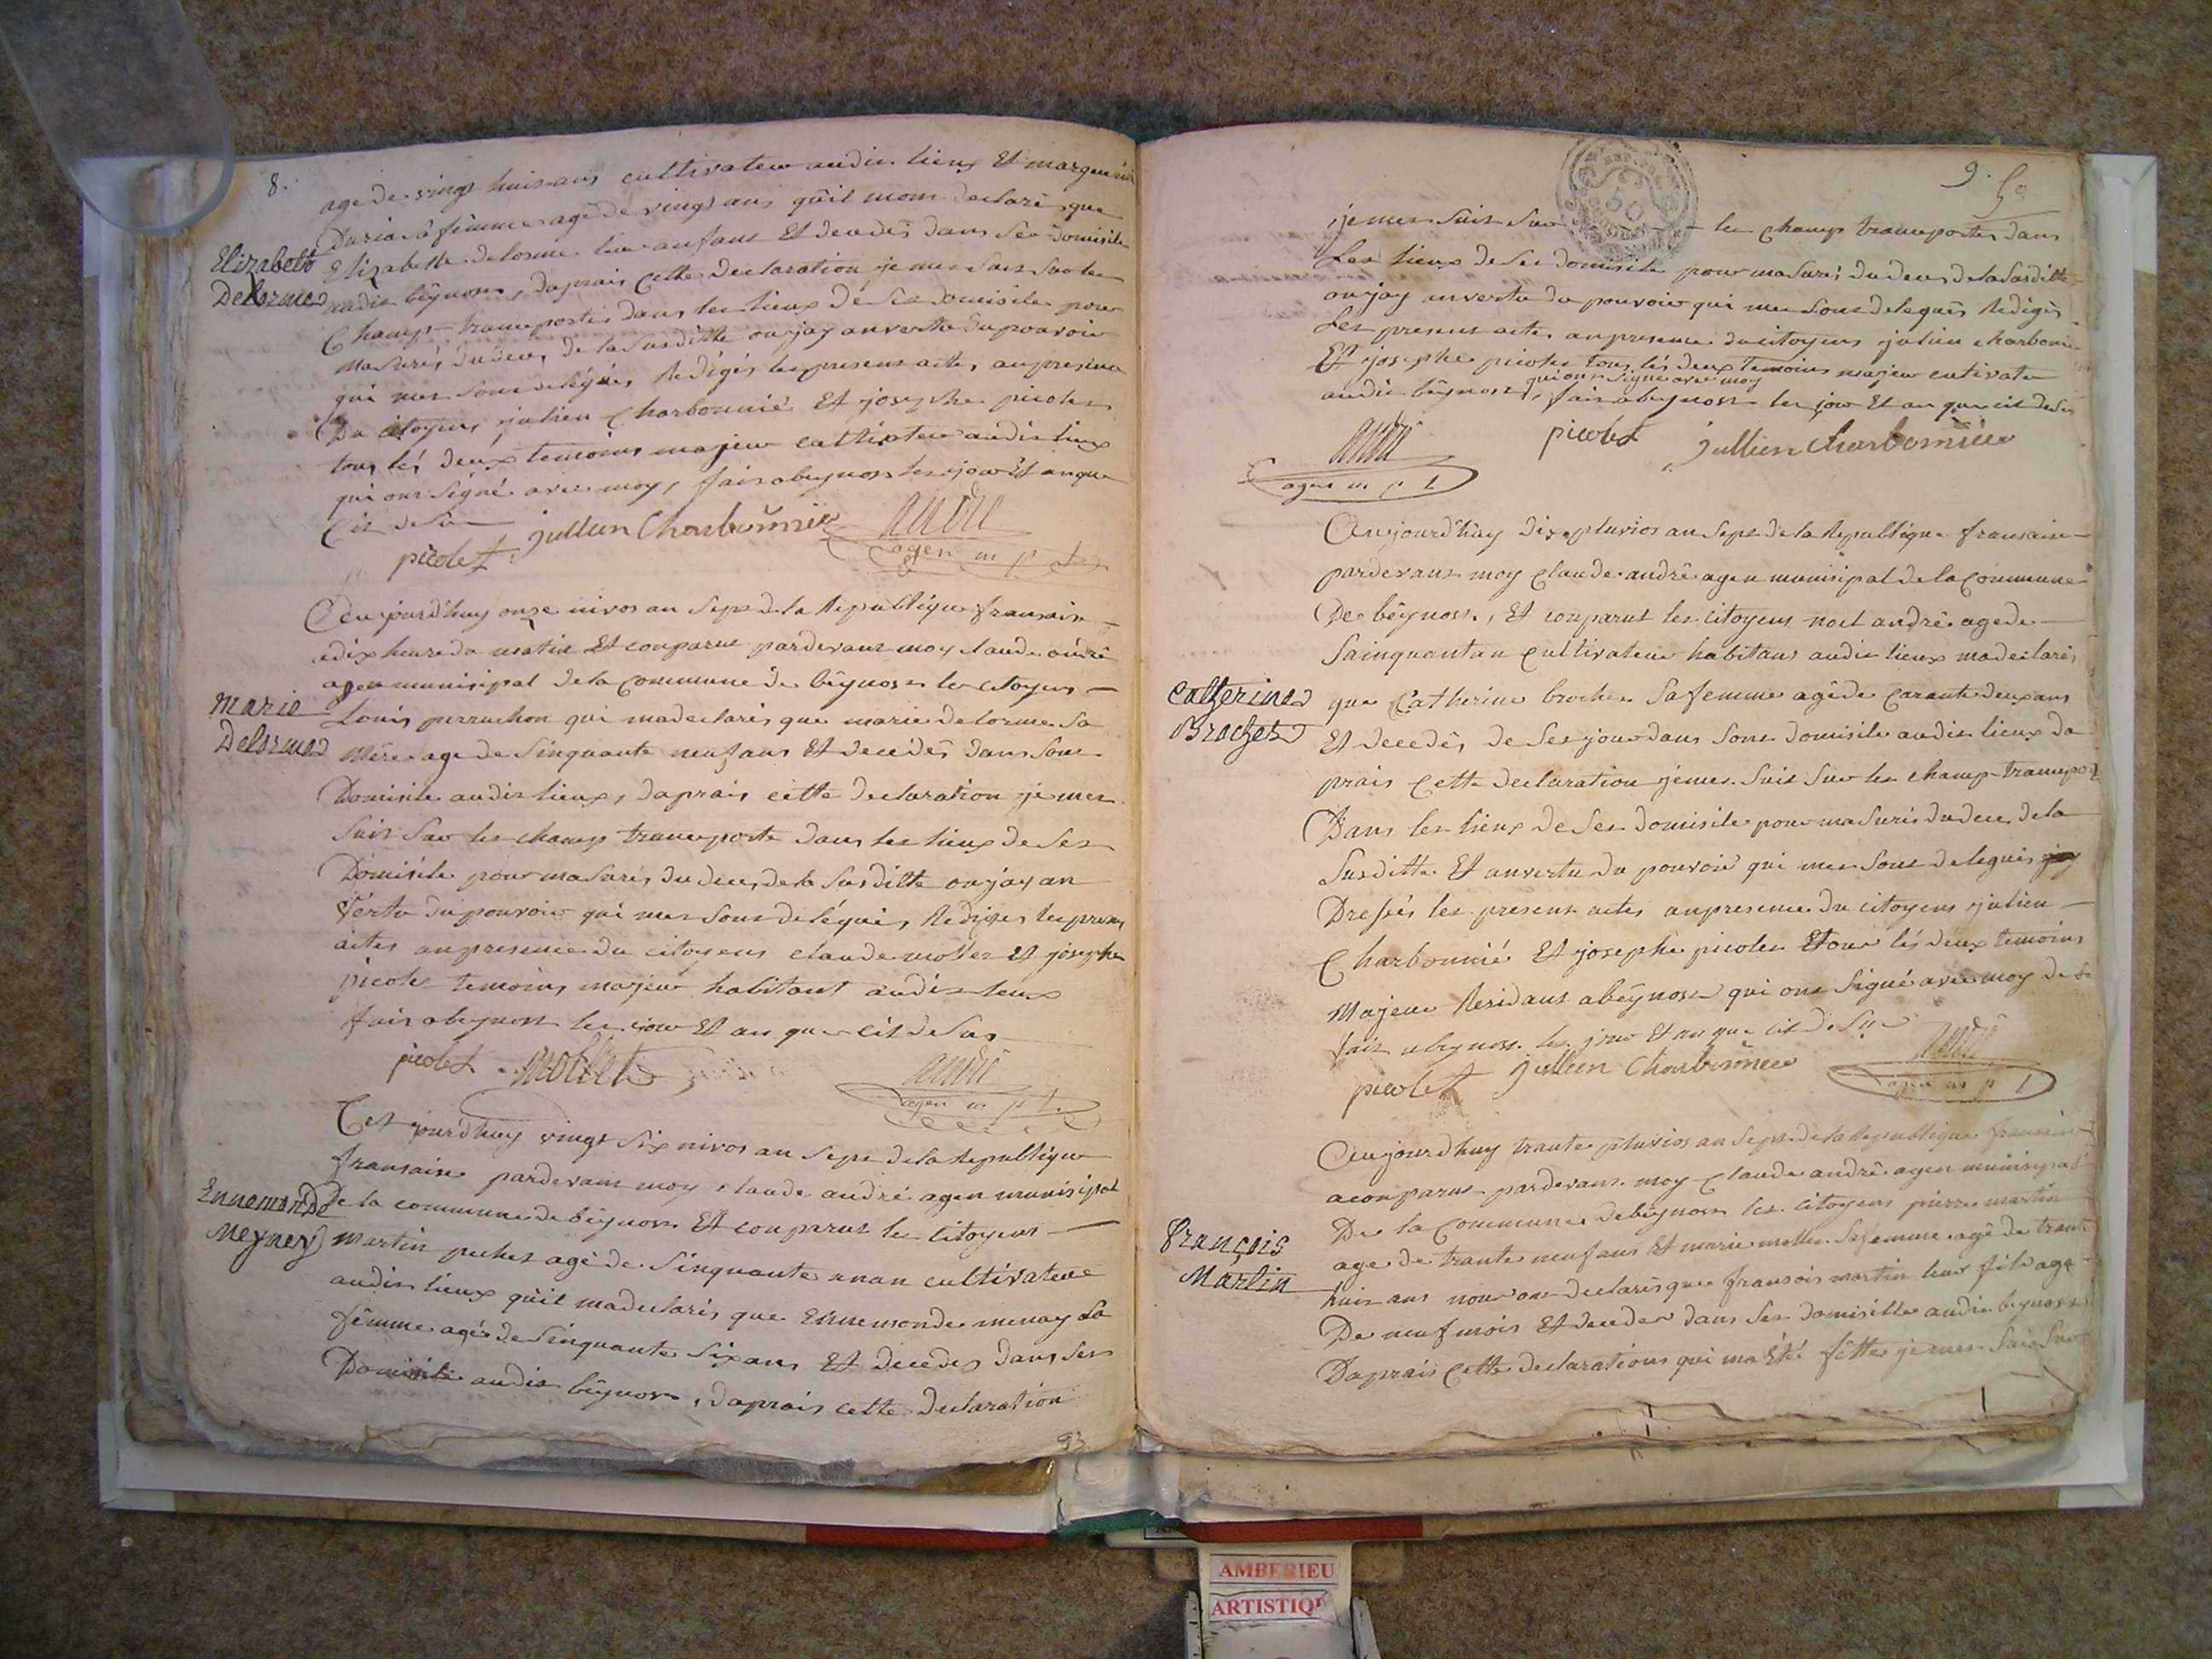 8.
age de vingt huit ans cultivateur audit lieux Et marguerite
Duria sa fêmme agê de vingt ans quil mon declarés que
Elizabeth Delorme
Elizabette delorme leur anfant Et decedês dans Ses domisile
audit bêynost, daprais Cette declaration je mes suis sur les
Champ-transportés dans les lieux de Ses domisile pour
masurés du deces de la susditte ou jay anvertu du pouvoir
qui mes sont delégués Redigés les present actes, anpresence
Du citoyens julien Charbonnié Et josephe picolet
tous lés deux temoins majeur cultivateur audit lieux
qui ont signé avec moy, fait abeynost les jour Et an que
Cit desu
picolet jullien Charbonnier andré
agen m p l
Ceaujourd'huy onze nivos an sept de la Republique fransaise
adix heure da matin Et conparut pardevant moy claude andré
agen munisipal de la Commune de bêynost les citoyens
Marie Delorme
Louis perruchon qui madeclarés que marie delorme sa
mêre age de sinquante neuf ans Et decédês dans sont
Domisile audit lieux, daprais cette declaration je mes
suis sur les champ transporte dans les lieux de Ses
Domisile pour masurés du deces de la susditte ou jay an
vértu du pouvoir qui mes sont delégués Rediges les present
actes anpresence du citoyens claude mollet Et josephe
picolet temoins majeur habitant audit leux
fait abeynost les jour Et an que cit desus
picolet mollet andré
agen m p l
Cet jourd'huy vingt Six nivos an Sept de la Republique
fransaise pardevant moy claude andré agen munisipal
Ennemonde Meyney
De la commune de bêynost Et conparut les Citoyens
martin puchet agê de Sinquante unan cultivateur
audit lieux quil madeclarés que Ennemonde menay sa
fêmme agés de Sinquante Six ans Et decedes dans ses
Domisile audit bêynost, daprais cette declaration
93
9. 50
je mes suis sur les champ transportes dans
Les lieux de Ses domisile pour masurés du deces de la Susditte
ou jay anvertu du pouvoir qui mes sont delegués Redigés
Les present actes anpresence du citoyens julien charbonnié
Et josephe picolet tous lés deux temoins majeur cultivateur
qui ont signé avec moy
audit bêynost, fait abeynost les jour Et an que cit desu
andré picolet jullien Charbonnier
agen m p l
Ceaujourd'huy dix pluvios an Sept de la Republique fransaise
pardevant moy Claude andrê agen munisipal de la Commune
De bêynost, Et conparut les Citoyens noel andrê age de
Sainquant an Cultivateur habitant audit lieux madeclarés
Catherine Brochet
que Catherine brochet Safemme agê de Carante deux ans
Et decedês de Ses jour dans sont domisile audit lieux da
prais Cette declaration je mes suis sur les champ transporte
Dans les lieux de Ses domisile pour masurés du deces de la
Susditte Et anvertu du pouvoir qui mes sont delegués jay
Dressés les present actes anpresence du citoyens julien
Charbonnié Et josephe picolet Etour lés deux temoins
Majeur Residant abêynost qui ont Signé avec moy de sa
fait abeynost les jour Et an que cit desu
picolet jullien Charbonnier andré
agen m p l
Ceaujourd'huy trante pluvios an Sept de la Republique fransaise
aconparut pardevant moy Claude andrê agen munisipal
De la Commune debêynost les Citoyens pierre martin
François Martin
age de trante neuf ans Et marie mollet Safemme agê de trante
huit ans nous on declarés que fransois martin leur fils age
De neuf mois Et deceder dans Ses domisille audit beynost
Daprais Cette declarations qui maêté fêtte je mes suis sur
AMBERIEU
ARTISTIQU